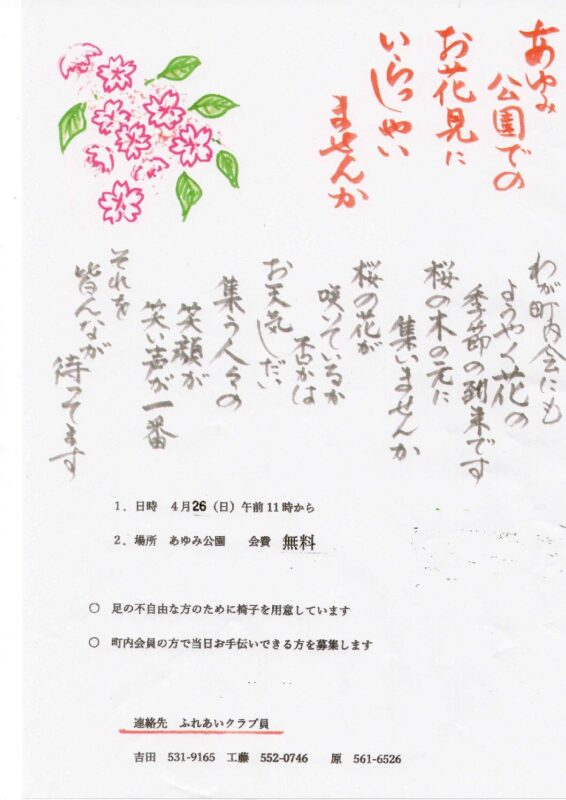 あゆみ
公園での
お花見に
いらっしゃい
ませんか
わが町内会にも
ようやく花の
季節の到来です
桜の木の元に
集いませんか
桜の花が
咲いているか
否かは
お天気しだい
集う人々の
笑顔が
笑い声が一番
それを
皆んなが
待ってます
1．日時　4月26（日）午前11時から
2．場所　あゆみ公園　　会費　無料
○　足の不自由な方のために椅子を用意しています
○　町内会員の方で当日お手伝いできる方を募集します
連絡先　ふれあいクラブ員
吉田　531-9165　工藤　552-0746　　原　561-6526